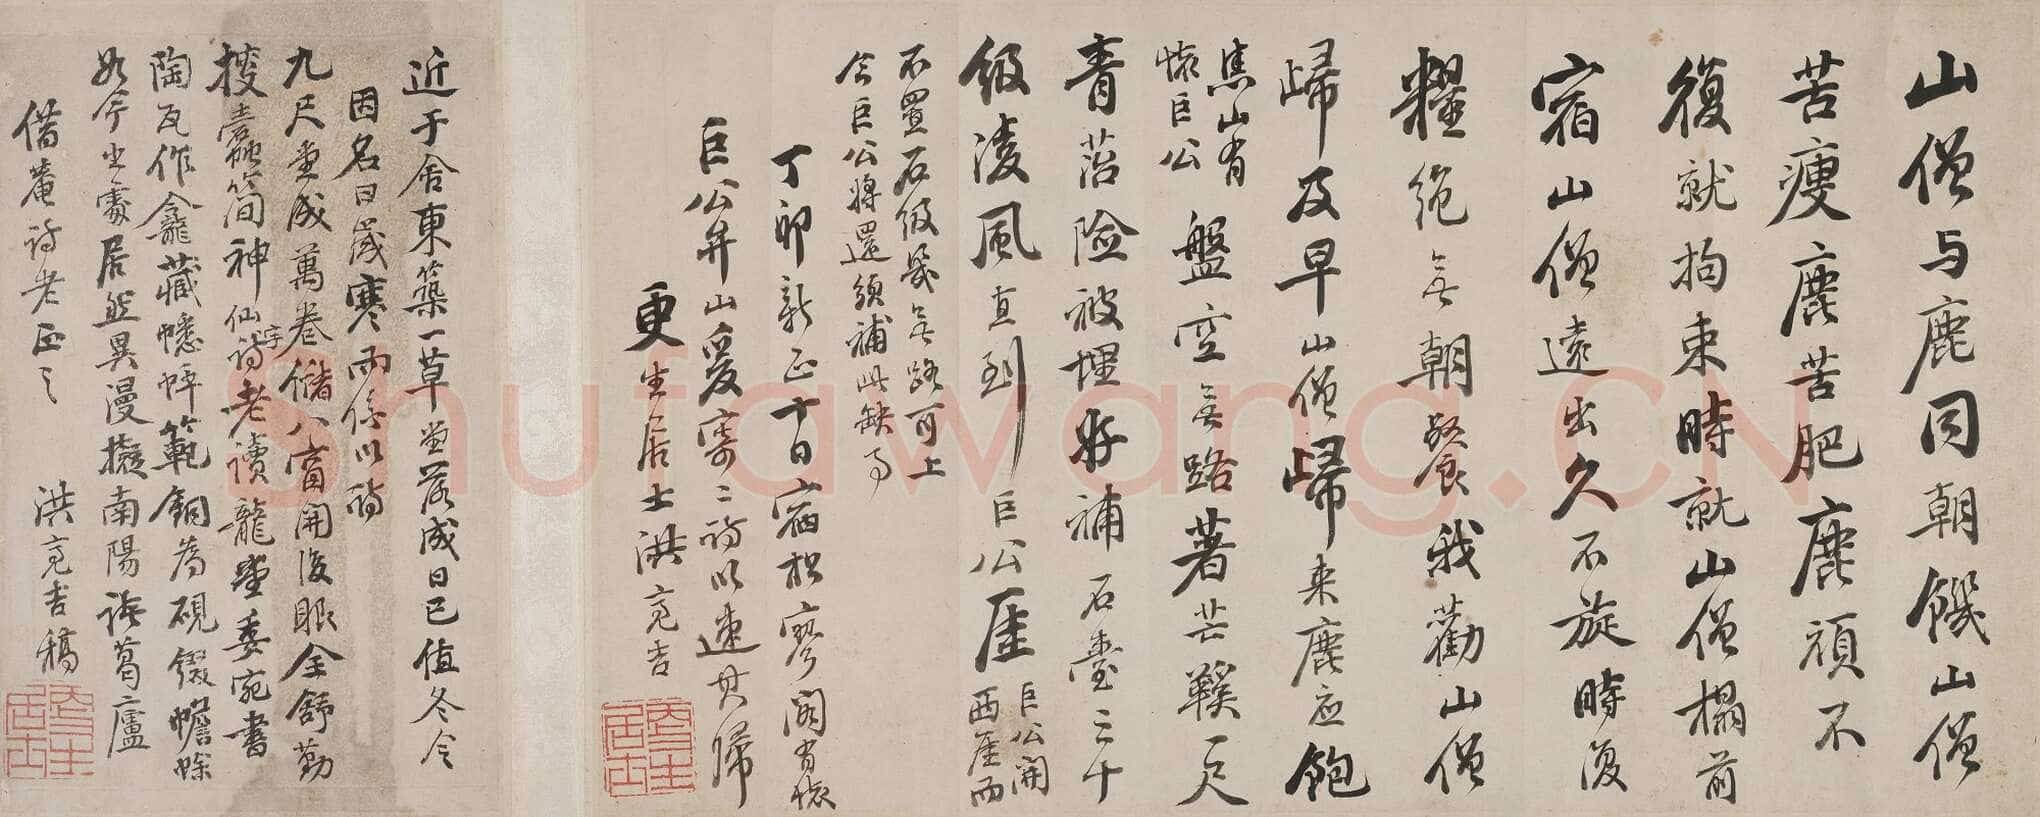 山僧与鹿同朝饑山僧
苦瘦鹿苦肥鹿頑不
復就拘束時就山僧榻前
宿山僧遠出久不旋時復
糧絕無朝餐我勸山僧
歸及早山僧歸來鹿應飽
焦山有
懷巨公
盤空無路著芒鞵一尺
青苔險被埋好補石臺三十
級淩風直到巨公厓
巨公開
西厓而
不置石級幾無路可上
今巨公將還須補此缺了
丁卯新正十日宿松寥閣有懷
巨公并山爰寄二詩以速其歸
更生居士洪亮吉
近于舍東築一草堂落成日已值冬令
因名曰歲寒而係以詩
九尺堂成萬卷儲八窗開後眼全舒勤
搜蠹蝕簡神仙字
詩老讀龍壁委宛書
陶瓦作龕藏幰範銅為硯綴蟾蜍
如今坐處居然異漫擬南陽諸葛廬
借菴詩老正之
洪亮吉稿
更生
居士
更生
居士
Shufawang.CN